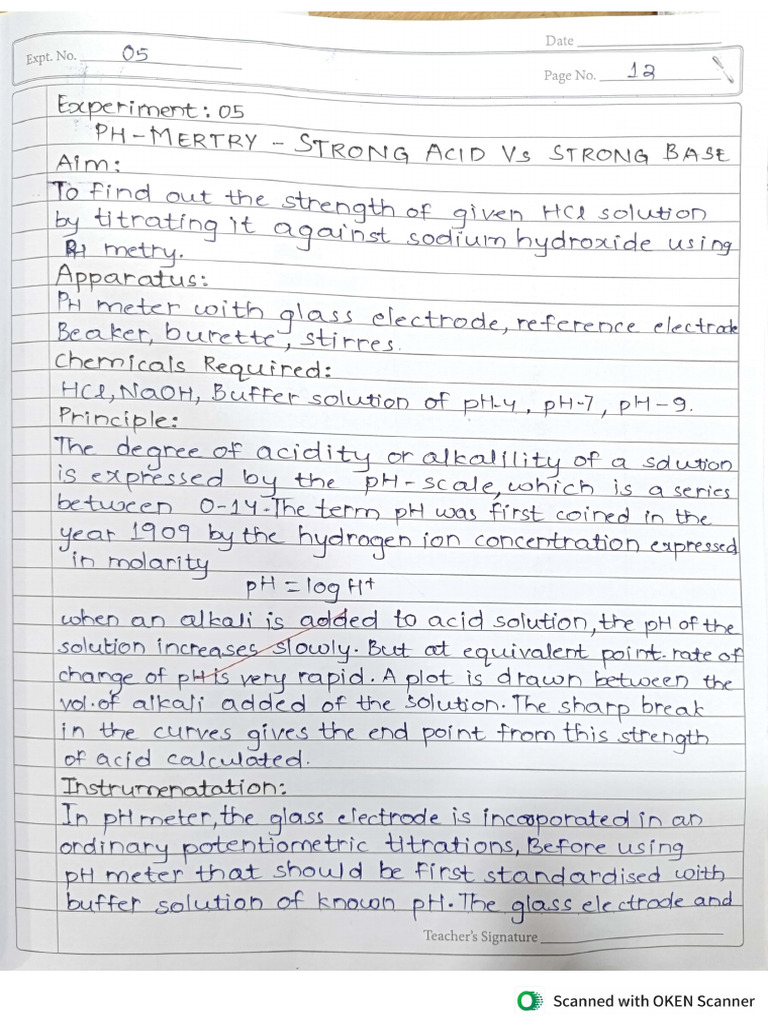 Date
Expt. No. 05
Page No. 12
Experiment: 05
PH-MERTRY - STRONG ACID Vs STRONG BASE
Aim:
To find out the strength of given HCl solution
by titrating it against sodium hydroxide using
PH metry.
Apparatus:
PH meter with glass electrode, reference electrode
Beaker, burette, stirres.
Chemicals Required:
HCl, NaOH, Buffer solution of pH-4, pH-7, pH-9.
Principle:
The degree of acidity or alkalility of a solution
is expressed by the pH-scale, which is a series
between 0-14. The term pH was first coined in the
year 1909 by the hydrogen ion concentration expressed
in molarity
pH = log H+
when an alkali is added to acid solution, the pH of the
solution increases slowly. But at equivalent point. rate of
change of pH is very rapid. A plot is drawn between the
vol. of alkali added of the solution. The sharp break
in the curves gives the end point from this strength
of acid calculated.
Instrumenatation:
In pH meter, the glass electrode is incooporated in an
ordinary potentiometric titrations, Before using
pH meter that should be first standardised with
buffer solution of known pH. The glass electrode and
Teacher's Signature
Scanned with OKEN Scanner